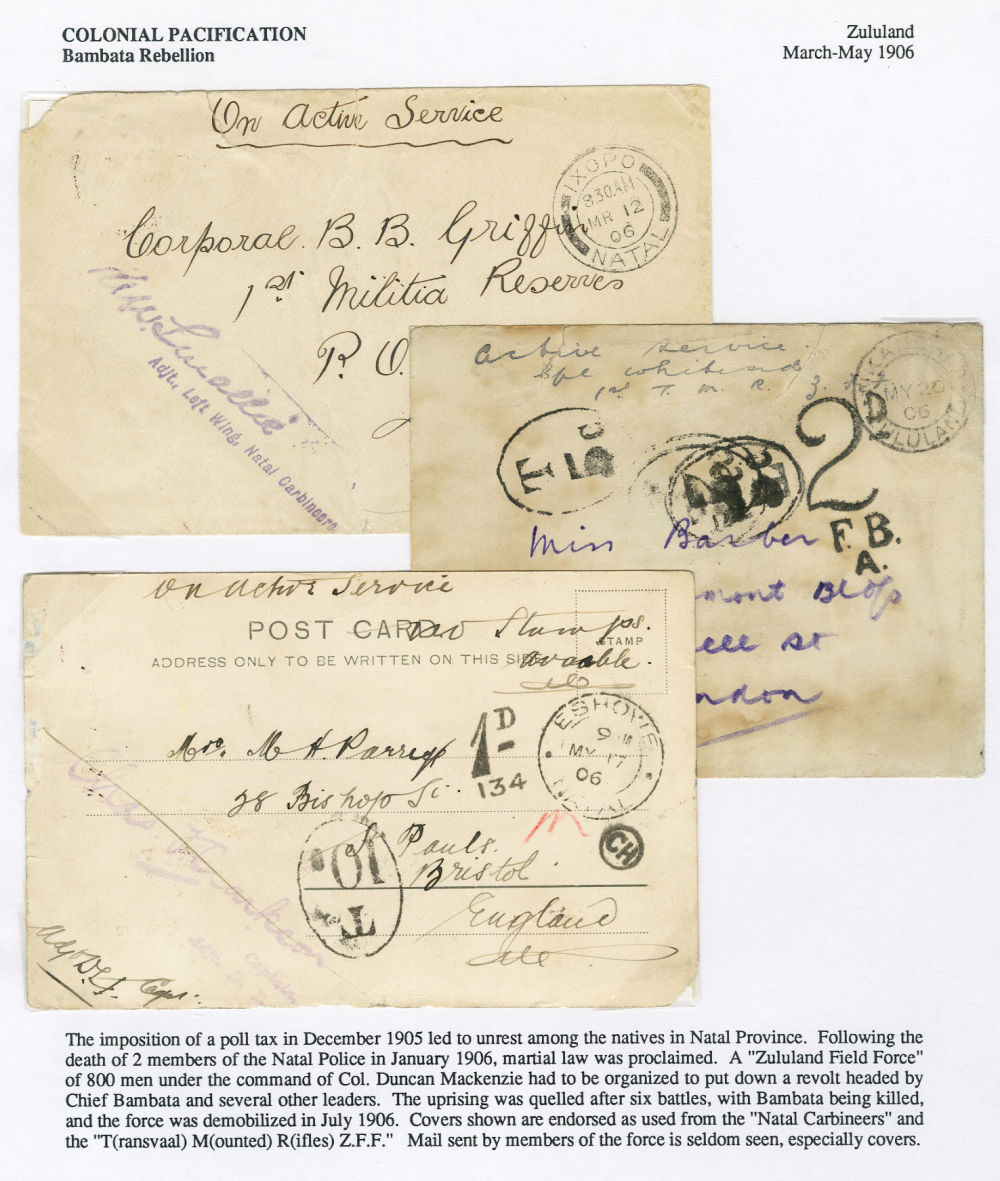 COLONIAL PACIFICATION
Bambata Rebellion
Zululand
March-May 1906
On Active Service
IXOPO
830AM
MR 12
06
NATAL
Corporal B. B. Griffin
1st Militia Reserves
P. O.
Adjt., Left Wing, Natal Carbineers
Active Service
1st T. M. R. Z. F. F.
MY 20
06
T
2D
F.B.
A.
Miss Barber
mont
ell St
ndon
On Active Service
POST CARD
No Stamps
STAMP
ADDRESS ONLY TO BE WRITTEN ON THIS SIDE
ESHOWE
MY 17
06
1D
134
Mrs. M. H.
38 Bishop St.
St Pauls.
CH
10
T
Bristol
England
The imposition of a poll tax in December 1905 led to unrest among the natives in Natal Province. Following the
death of 2 members of the Natal Police in January 1906, martial law was proclaimed. A "Zululand Field Force"
of 800 men under the command of Col. Duncan Mackenzie had to be organized to put down a revolt headed by
Chief Bambata and several other leaders. The uprising was quelled after six battles, with Bambata being killed,
and the force was demobilized in July 1906. Covers shown are endorsed as used from the "Natal Carbineers" and
the "T(ransvaal) M(ounted) R(ifles) Z.F.F." Mail sent by members of the force is seldom seen, especially covers.